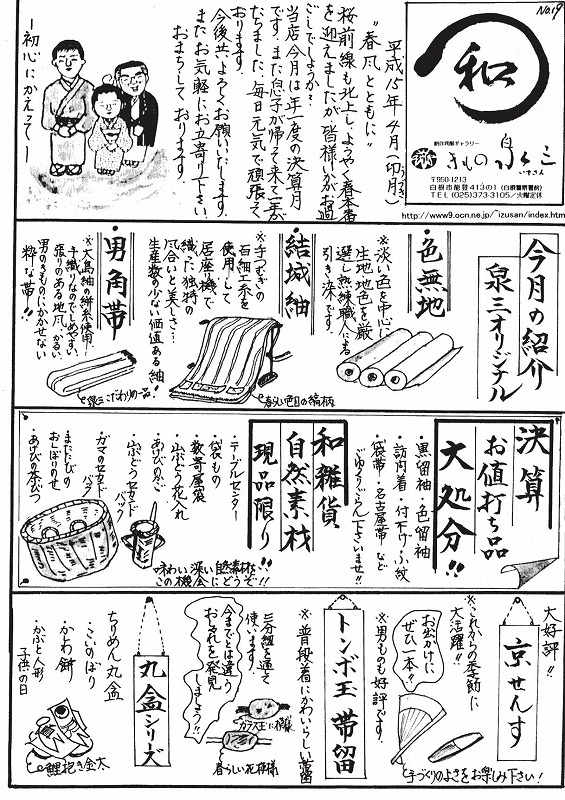 No.19
和
創作呉服ギャラリー
きもの 泉三
いずさん
〒950-1213
白根市能登413の1(白根警察署前)
TEL(025)373-3105/火曜定休
http://www9.ocn.ne.jp/~izusan/index.htm
平成15年4月(卯月)
うづき
"春風とともに"
桜前線も北上し、ようやく春本番
を迎えましたが皆様いかがお過
ごしでしょうか?
当店今月は年一度の決算月
です。また息子が帰って来て一年が
たちました。毎日元気で頑張て
おります。
今後共、よろしくお願いいたします。
またお気軽にお立寄り下さい。
おまちしております。
―初心にかえって―
今月の紹介
泉三オリジナル
・色無地
※淡い色を中心に
生地、地色を厳
選し熟練職人による
引き染です。
・結城紬
※手つむぎの
百細工糸を
使用して
居座機で
織った独特の
風合いと美しさ…
生産数の少ない価値ある紬!
春らしい色目の縞柄
・男角帯
※大島紬の絣糸使用!
手織りなのでしめやすい、
張りのある地風、かるい、
男のきものにかかせない
粋な帯!!
泉三こだわりの一品!
決算
お値打ち品
大処分!!
・黒留袖・色留袖
・訪問着・付下げ・小紋
・袋帯・名古屋帯 など
ごゆっくりご覧下さいませ!!
和雑貨
自然素材
現品限り!!
・テーブルセンター
・袋もの
・数寄屋袋
・山ぶどう花入れ
・あけびのかご
・山ぶどうセカンド
バック
・ガマのセカンド
バック
・またたびの
おしぼりのせ
・あけびの茶びつ
味わい深い自然素材
この機会にどうぞ!!
大好評!!
京せんす
※これからの季節に
大活躍!!
お出かけに
ぜひ一本!?
※男ものも好評です。
手づくりのよさをお楽しみ下さい!
トンボ玉 帯留
※普段着にかわいらしい帯留
三分紐を通て
使います。
今までとは違う
おしゃれを発見
しましょう!!
ガラス玉に模様
春らしい花模様
丸盆シリーズ
ちりめん丸盆
・こいのぼり
・かわ餅
・かぶと人形
子供の日
鯉抱き金太